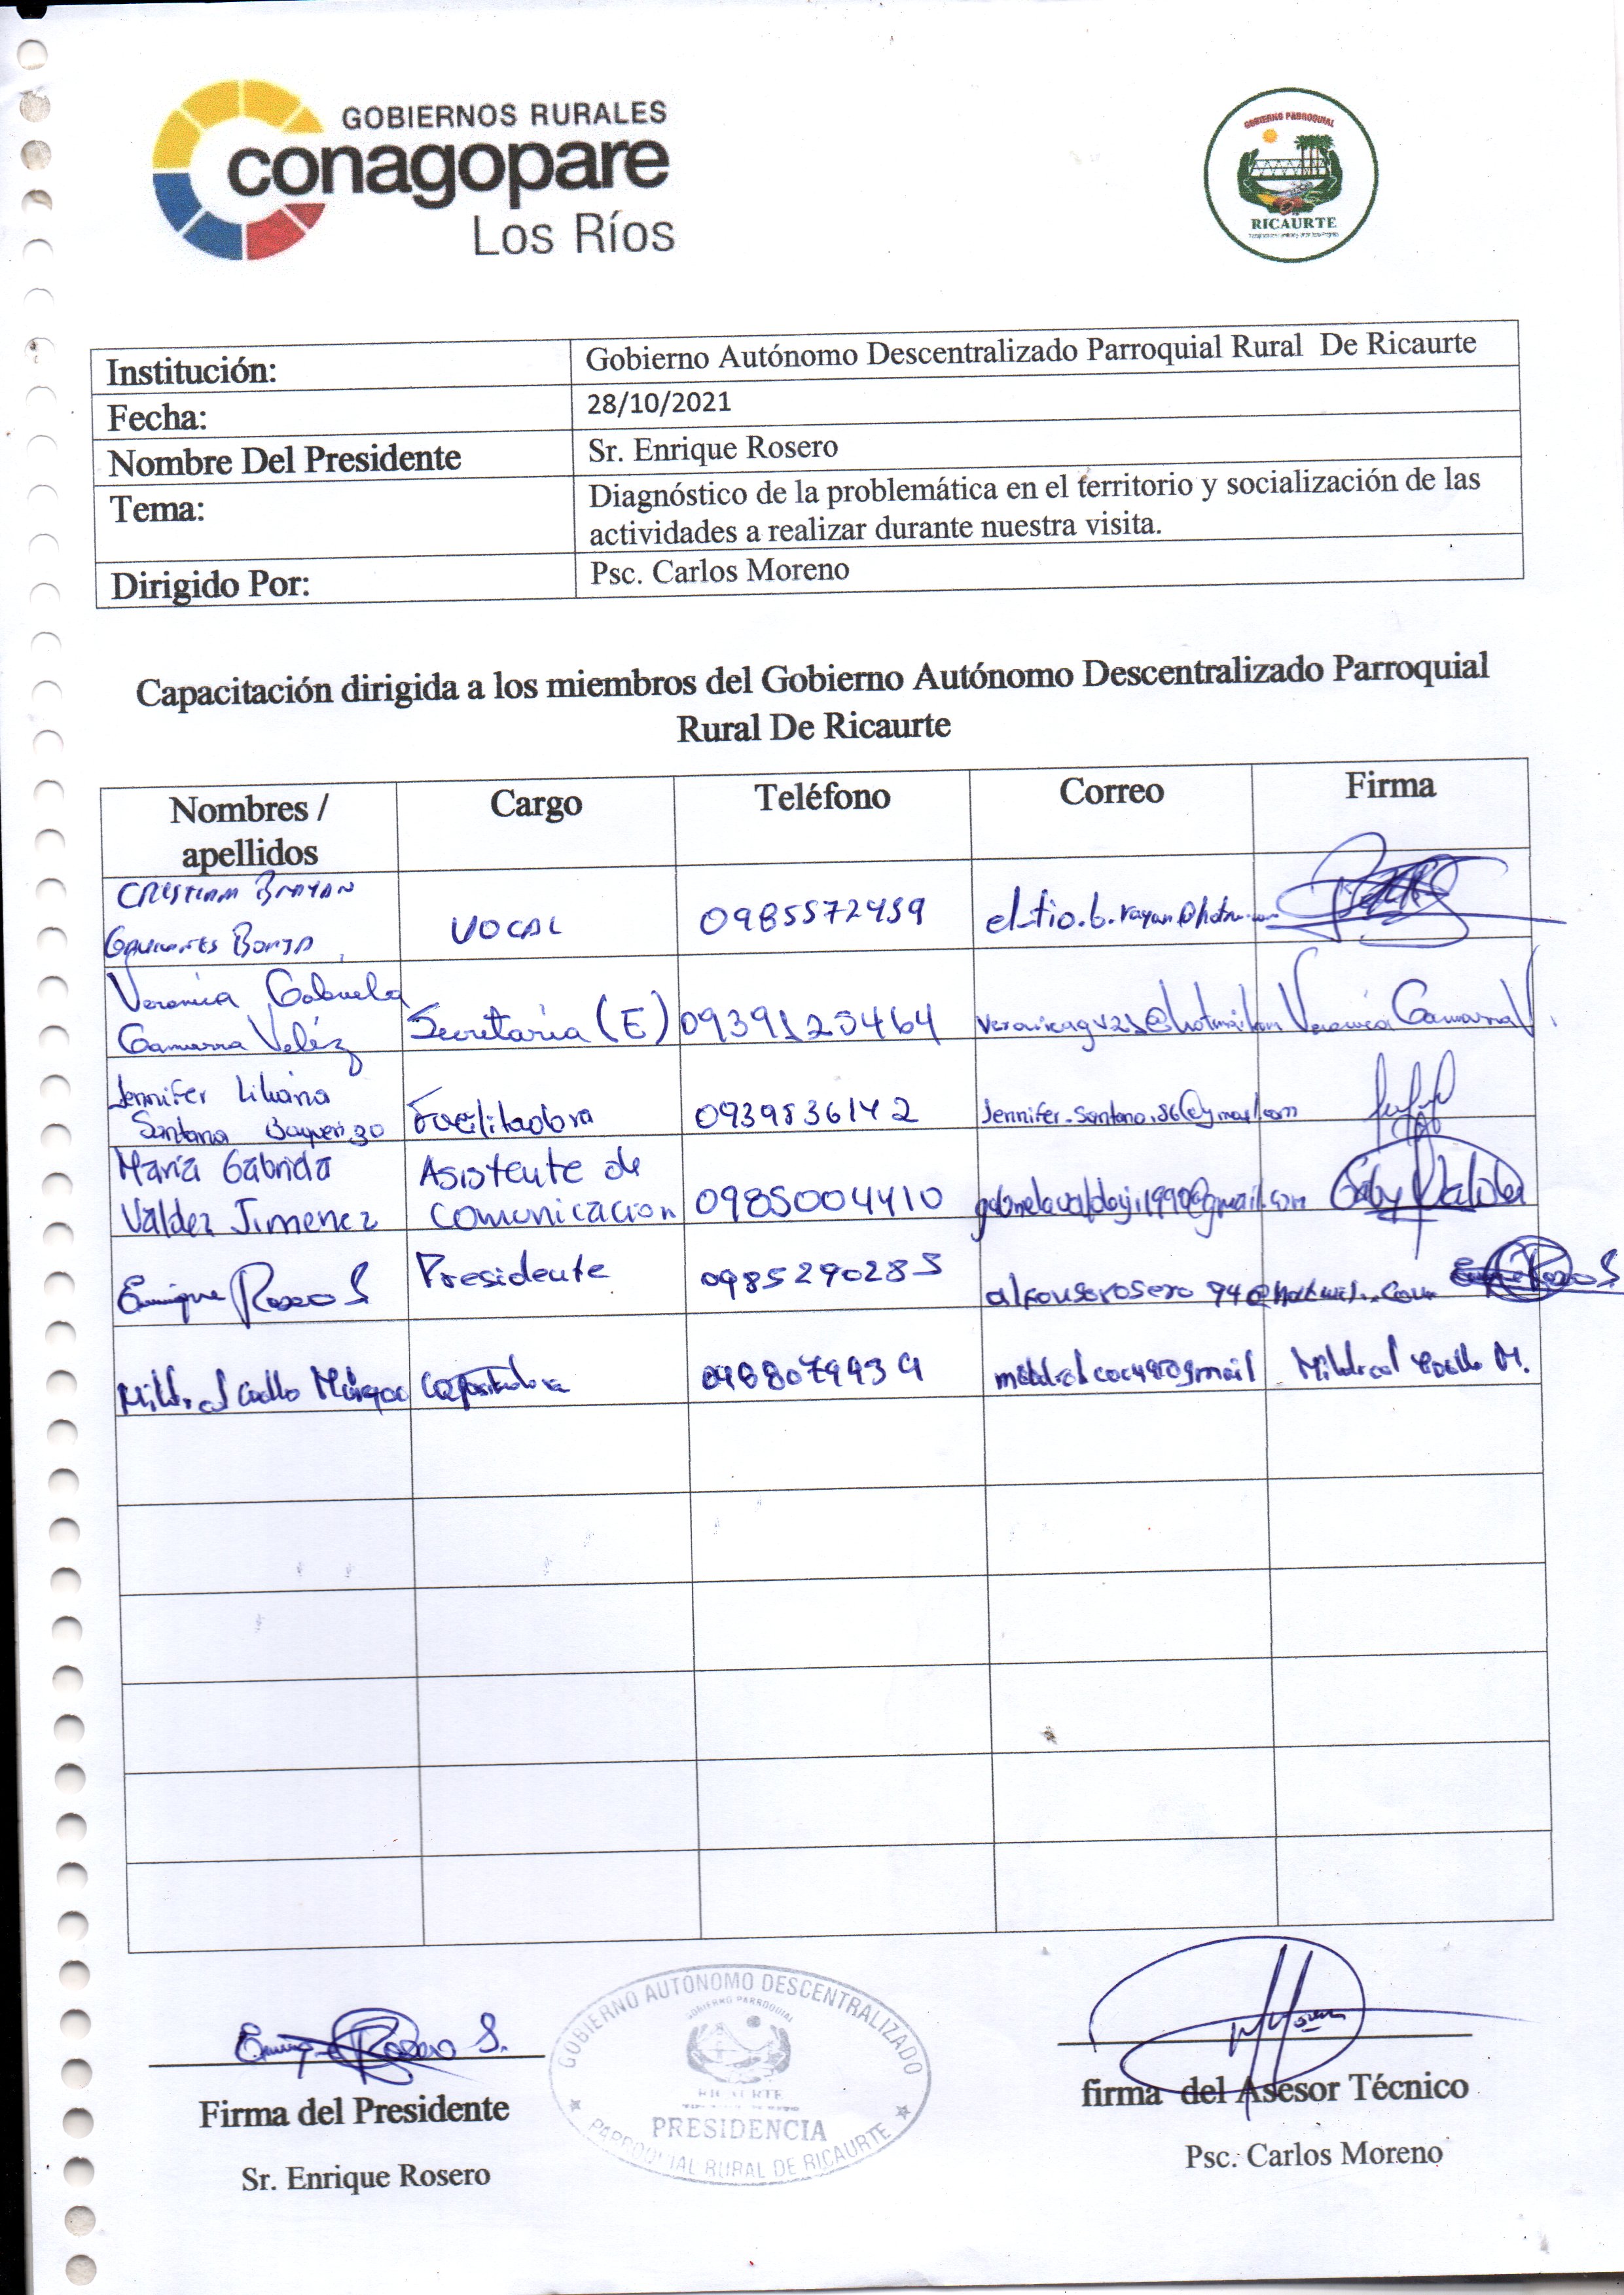 GOBIERNOS RURALES
conagopare
Los Ríos
GOBIERNO PARROQUIAL
RICAURTE
Institución: Gobierno Autónomo Descentralizado Parroquial Rural De Ricaurte
Fecha: 28/10/2021
Nombre Del Presidente Sr. Enrique Rosero
Tema: Diagnóstico de la problemática en el territorio y socialización de las
actividades a realizar durante nuestra visita.
Dirigido Por: Psc. Carlos Moreno
Capacitación dirigida a los miembros del Gobierno Autónomo Descentralizado Parroquial
Rural De Ricaurte
Nombres / Cargo Teléfono Correo Firma
apellidos
CRISTIAM BRAYAN
VOCAL 0985572459
Veronica Gabriela
Gamarra Veléz Secretaria (E) 0939123464 Veronica Gamarra V.
Jennifer Liliana
Santana Baquerizo Facilitadora 0939836142 Jennifer-Santana.86@gmail.com
María Gabriela Asistente de
Valdez Jimenez Comunicacion 0985004410 Gaby Valdez
Enrique Rosero S Presidente 0985290285 alfonsorosero94@hotmail.com Enrique Rosero S
Mildred Coello Capacitadora 0988079939 Mildred Coello M.
Enrique Rosero S.
GOBIERNO AUTÓNOMO DESCENTRALIZADO
GOBIERNO PARROQUIAL
RICAURTE
PRESIDENCIA
PARROQUIAL RURAL DE RICAURTE
Firma del Presidente
Sr. Enrique Rosero
firma del Asesor Técnico
Psc. Carlos Moreno